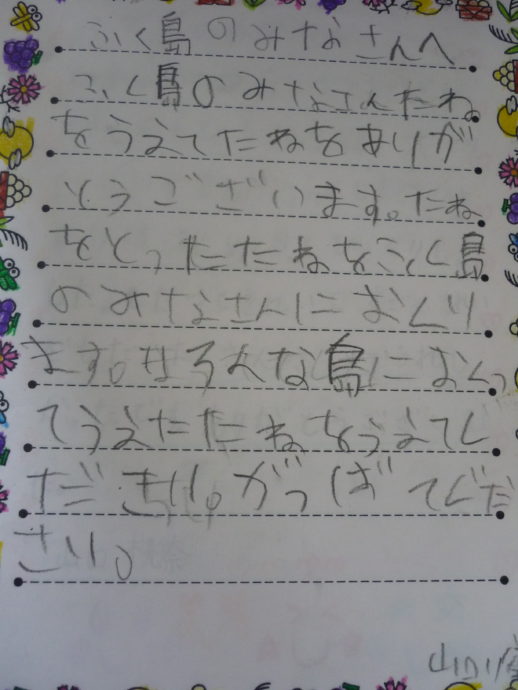 ふく島のみなさんへ
ふく島のみなさんたね
をうえてたねをあり が
とうございます。たね
をとったたねをふく島
のみなさんにおくり
ます。せろんな島におくっ
てうえたたねをうえてく
ださい。がっばてくだ
さい。